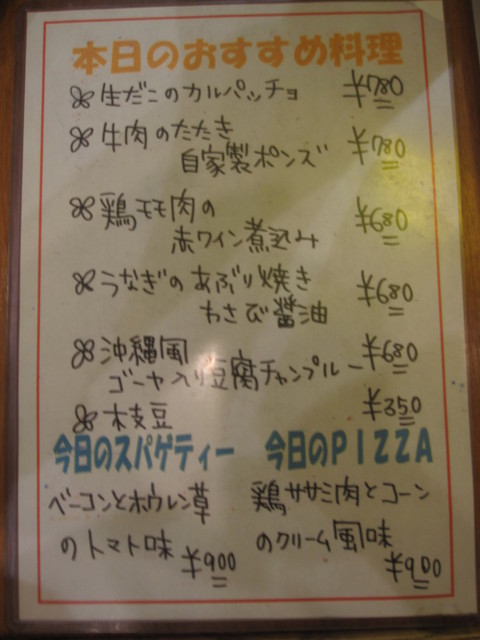 本日のおすすめ料理
生だこのカルパッチョ ¥780
牛肉のたたき
自家製ポンズ ¥780
鶏モモ肉の
赤ワイン煮込み ¥680
うなぎのあぶり焼き
わさび醤油 ¥680
沖縄風
ゴーヤ入り豆腐チャンプルー ¥680
枝豆 ¥350
今日のスパゲティー
ベーコンとホウレン草
のトマト味 ¥900
今日のPIZZA
鶏ササミ肉とコーン
のクリーム風味
¥900